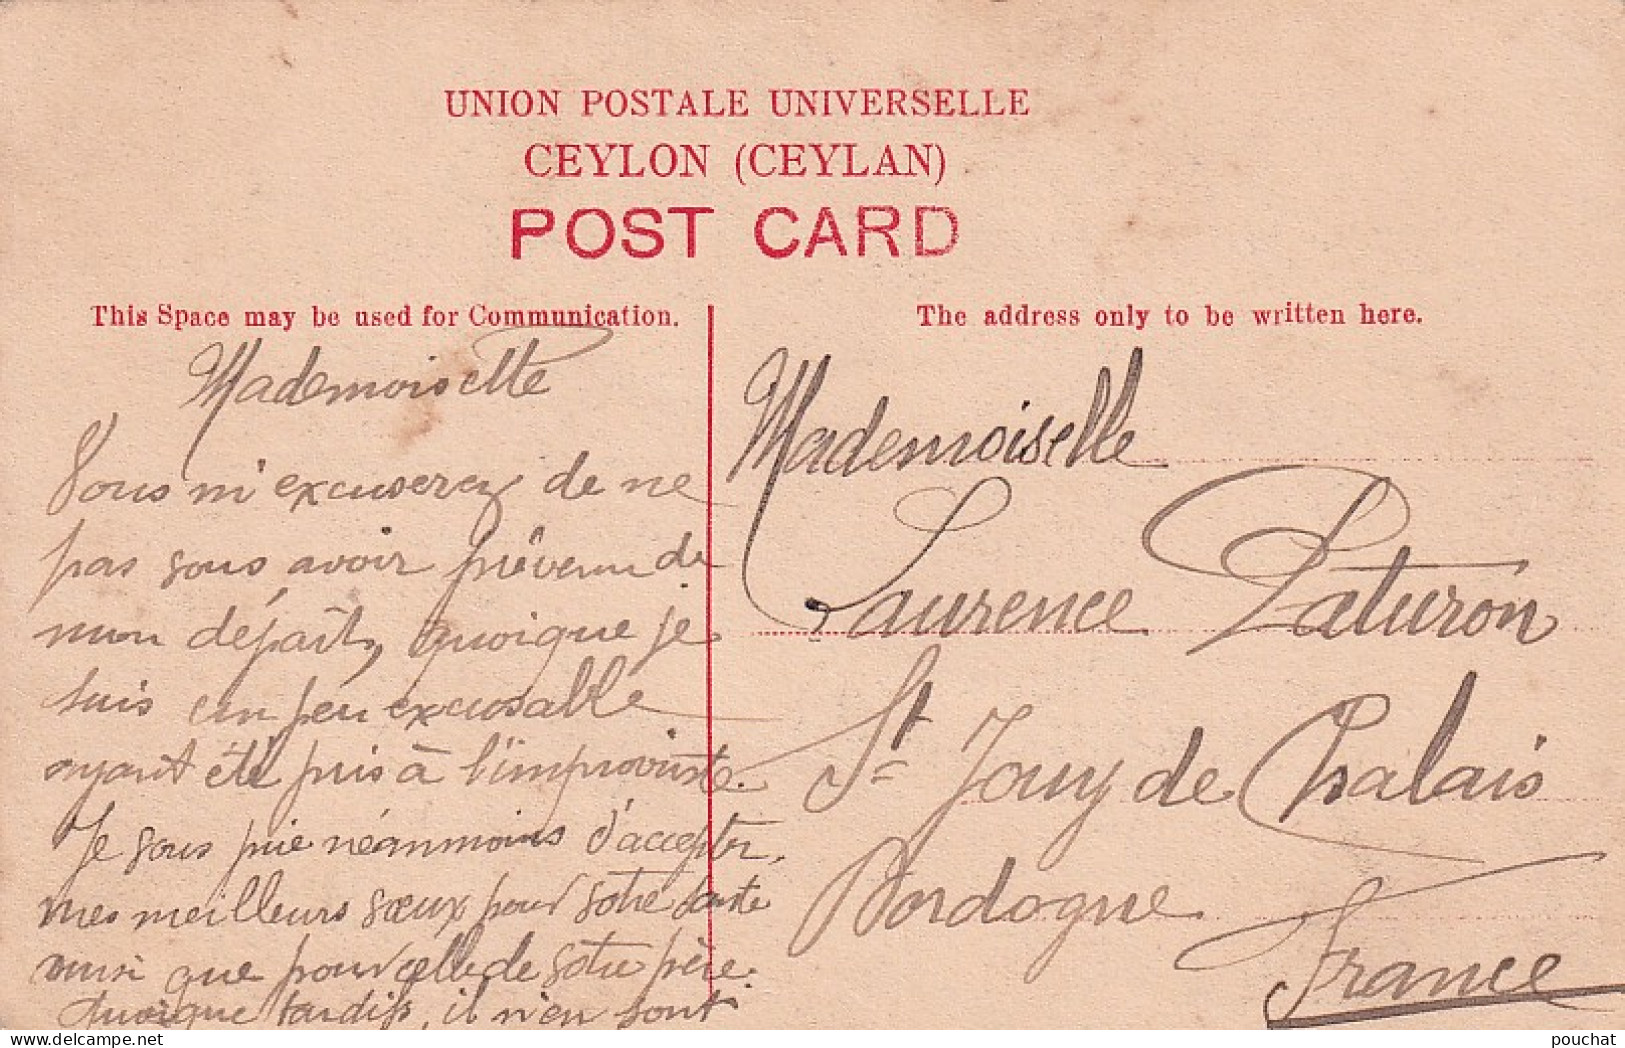 UNION POSTALE UNIVERSELLE
CEYLON (CEYLAN)
POST CARD
This Space may be used for Communication.
The address only to be written here.
Mademoiselle
Vous m'excuserez de ne
pas vous avoir prévenu de
mon départ, quoique je
suis un peu excusable
ayant été pris à l'improviste.
Je vous prie néanmoins d'accepter,
mes meilleurs vœux pour votre santé
ainsi que pour celle de votre père.
Quoique tardifs, il n'en sont
Mademoiselle
Laurence Paturon
St Jouy de Chalais
Dordogne
France
pouchat